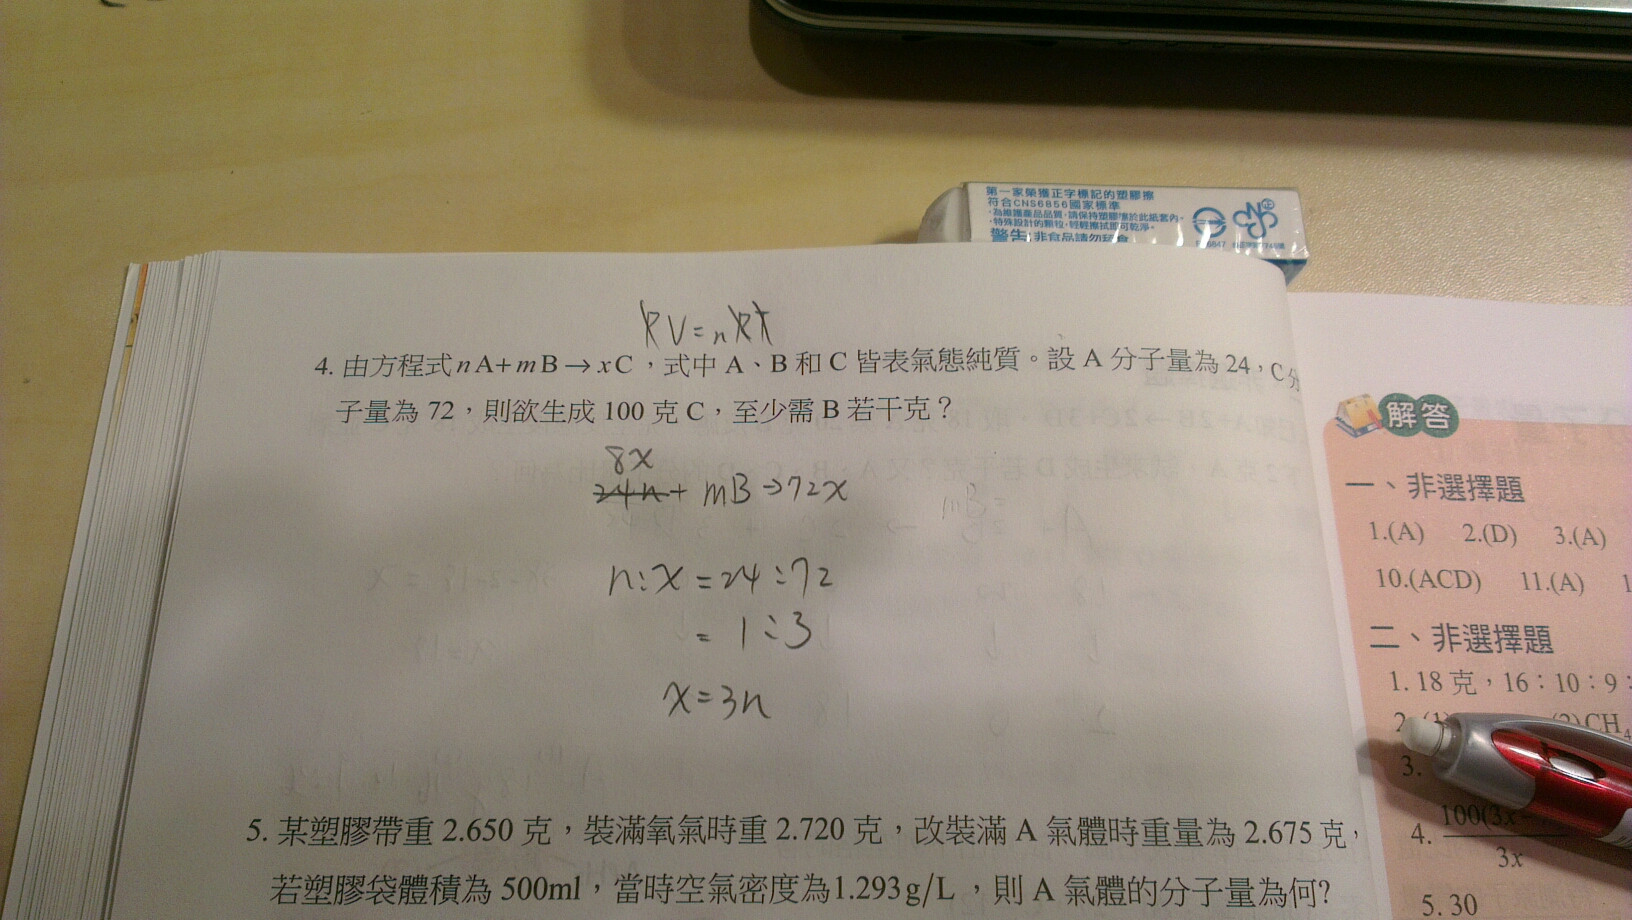 第一家榮獲正字標記的塑膠擦
符合CNS6856國家標準
警告:非食品請勿
PV=nRT
4. 由方程式nA+mB→xC，式中 A、B 和 C 皆表氣態純質。設 A 分子量為 24，C分
子量為 72，則欲生成 100 克 C，至少需 B 若干克？
8x
24n + mB→72x
mB=
n:x=24:72
=1:3
x=3n
5. 某塑膠帶重 2.650 克，裝滿氧氣時重 2.720 克，改裝滿 A 氣體時重量為 2.675 克，
若塑膠袋體積為 500ml，當時空氣密度為1.293g/L，則 A 氣體的分子量為何?
解答
一、非選擇題
1.(A) 2.(D) 3.(A)
10.(ACD) 11.(A) 1
二、非選擇題
1. 18 克，16：10：9：
2. (1) (2)CH4
3.
4. 100(3x-
3x
5. 30